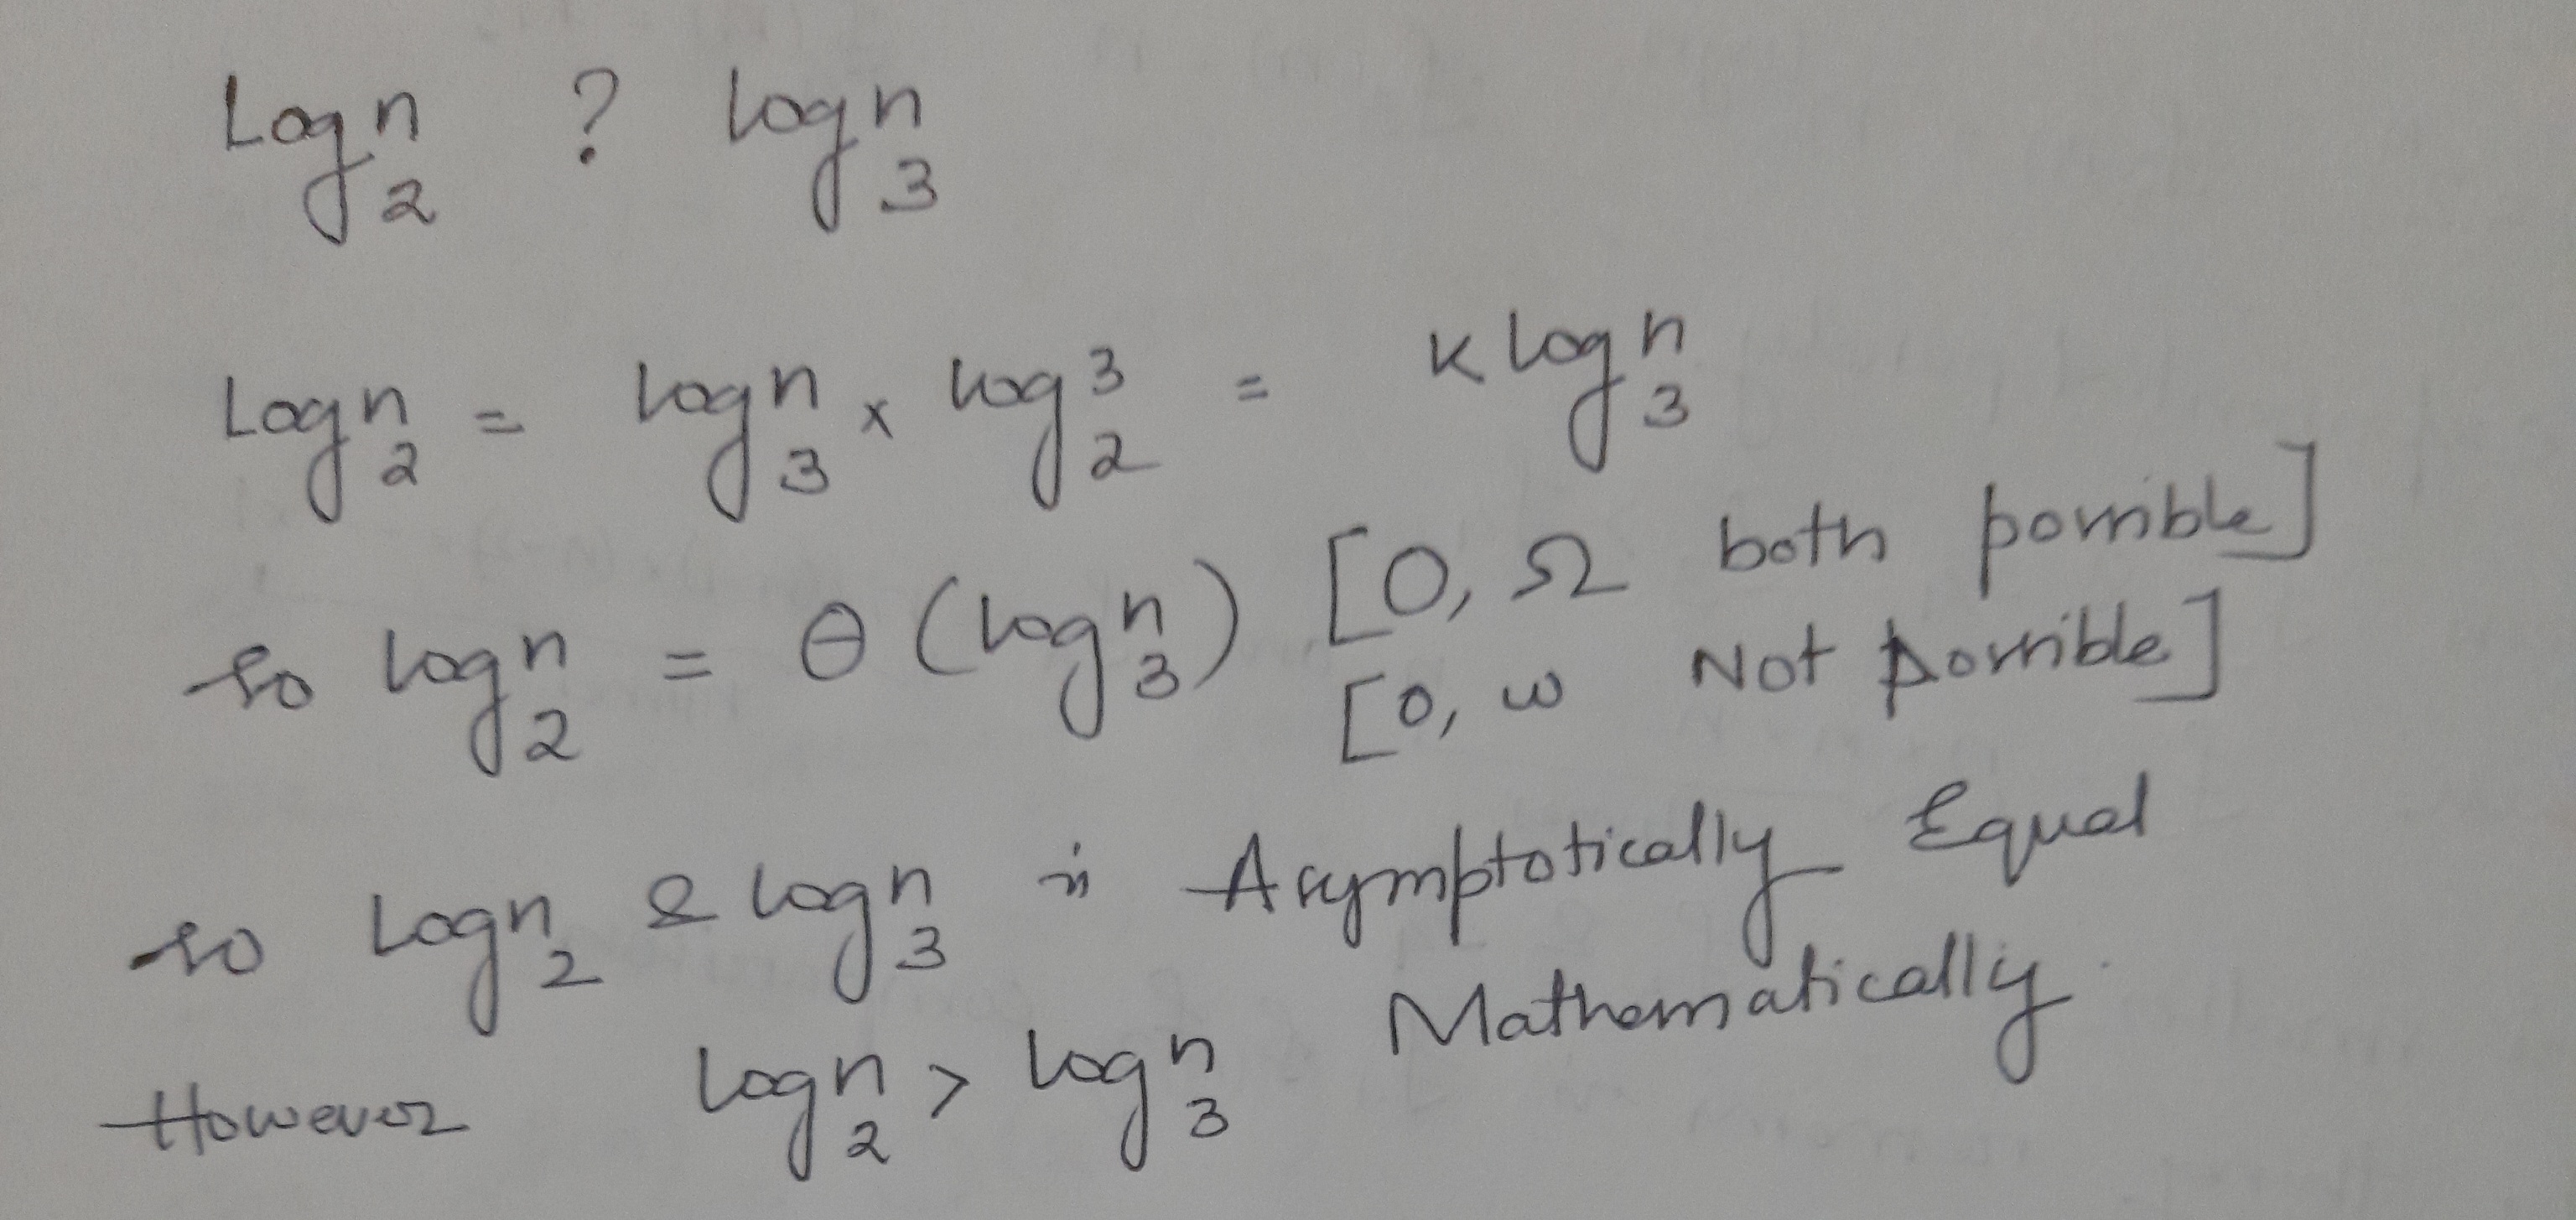 Log₂ⁿ ? logₙ₃
Log₂ⁿ = log₃ⁿ × log₂³ = K log₃ⁿ
so log₂ⁿ = θ (log₃ⁿ) [O, Ω both possible]
[o, ω Not possible]
so Log₂ⁿ & log₃ⁿ is Asymptotically Equal
However log₂ⁿ > log₃ⁿ Mathematically.